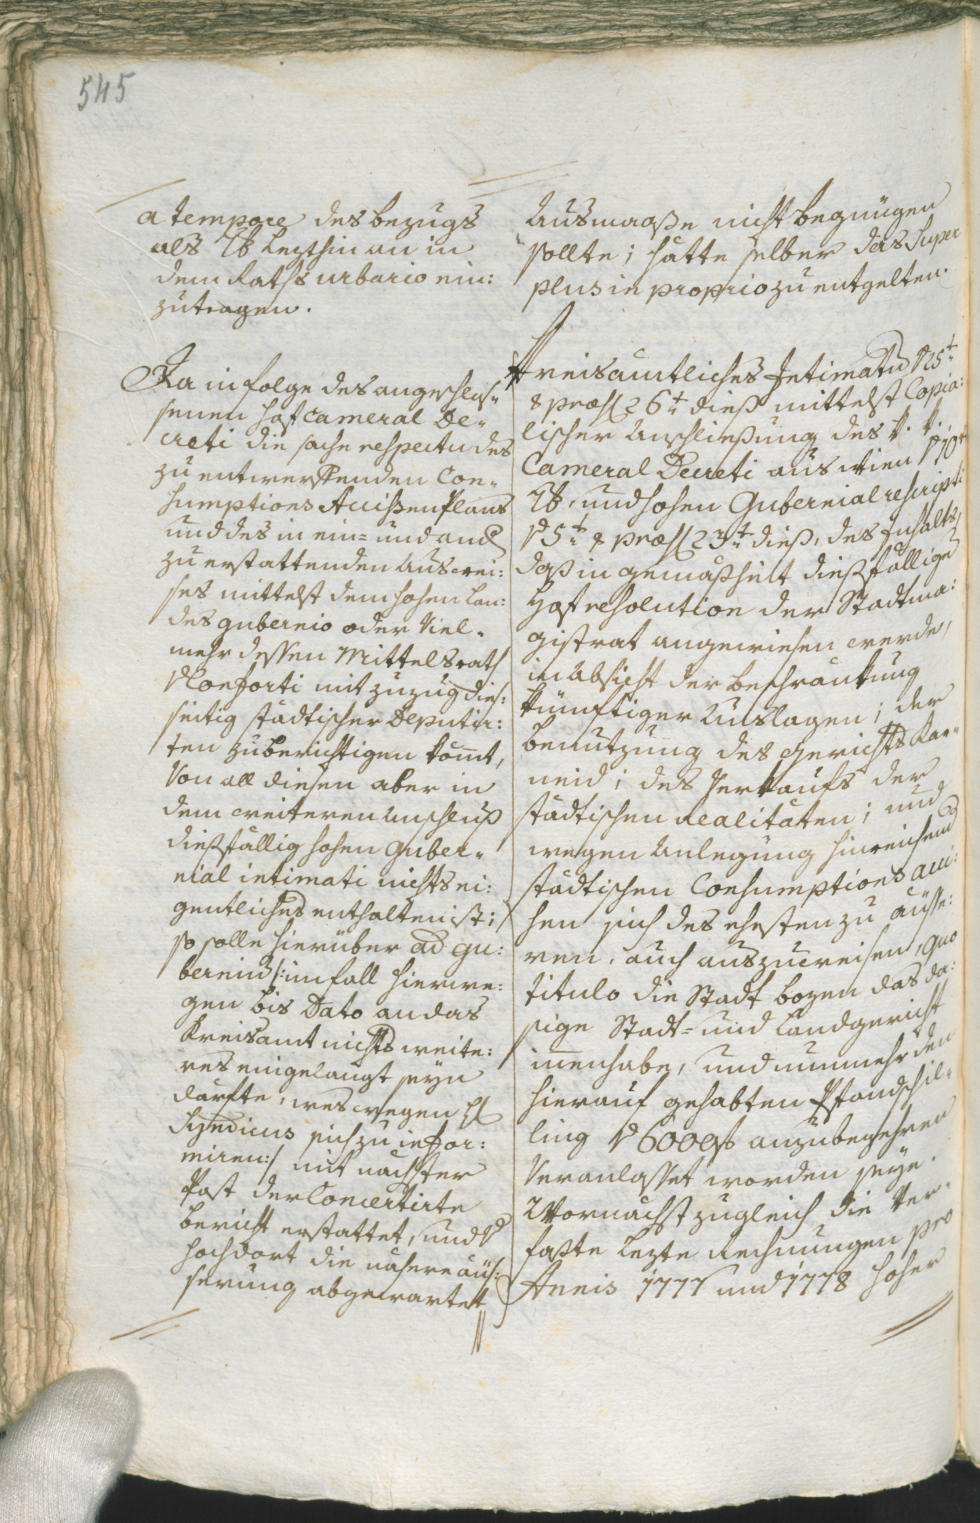 545
a tempore des bezugs
als 7b lezthin an in
dem Raths urbario ein:
zutragen.
Da in folge des angeschlos„
senen hof Cameral De„
creti die sache respectu des
zu entwerffenden Con„
sumptions Accißen Plans
und des in ein= und and
zu erstattenden Auswei:
ses mittelst dem hohen Lan:
des gubernio oder Viel„
mehr dessen Mittelsrath
v Conforti mit zuzug dies:
seitig städtischer Deputir:
ten zuberichtigen komt,
Von all diesen aber in
dem weiteren Anschluß
dießfällig hohen Guber„
nial intimati nichts ei:
gentliches enthalten ist;
so solle hierüber ad gu:
bernium /: im fall hierwe:
gen bis Dato an das
Kreisamt nichts weite:
res eingelangt seyn
darfte, weswegen H
Syndicus sich zu infor:
miren :/ mit nächster
Post der Concertirte
bericht erstattet, und v
hochdort die nähere äus:
serung abgewartet
Ausmaaße nicht begnügen
sollte; hätte selber das Super
plus in proprio zu entgelten.
Kreisämtliches Intimatum v 5t
& præs 6t dieß mittelst Copia:
lischer Anschließung des
Cameral Decreti aus Wien v 10t
7b, und hohen Gubernial rescripti
v 5t & præs 3t dieß, des Inhalts,
daß in gemäßheit dießfälliger
Hof resolution der Stadtma:
gistrat angewiesen werde,
in Absicht der beschränkung
künftiger Auslagen; der
benutzung des Gerichts Kar„
neid; des Verkaufs der
städtischen Realitäten; und
wegen Anlegung hinreichend
städtischen Consumptions acci:
sen sich des ehesten zu äusse:
ren, auch auszuweisen, quo
titulo die Stadt bozen das da:
sige Stadt= und Landgericht
innenhabe, und nunmehr den
hierauf gehabten Pfandschil„
ling v 6000 f anzubegehren
Veranlasset worden seye.
Wornächst zugleich die Ver„
faßte lezte Rechnungen pro
Annis 1777 und 1778 hoher